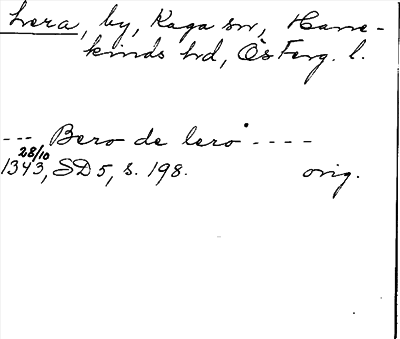 Lvera, by, Kaga sn, Hane-
kinds hd, Österg. l.
--- Bero de lero ----
28/10
1343, SD 5, s. 198. orig.